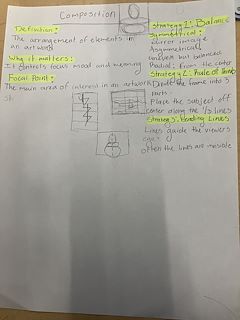 Composition
Definition:
The arrangement of elements in
an artwork
Why it matters:
It controls focus mood and meaning
Focal Point:
The main area of interest in an artwork
Strategy 1: Balance
Symmetrical:
mirror image
Asymmetrical
uneven but balanced
Radial: from the center
Strategy 2: Rule of thirds
Divide the frame into 3
parts.
Place the subject off
center along the 1/3 lines
Strategy 3: Leading Lines
Lines guide the viewers
eye.
often the lines are invisible